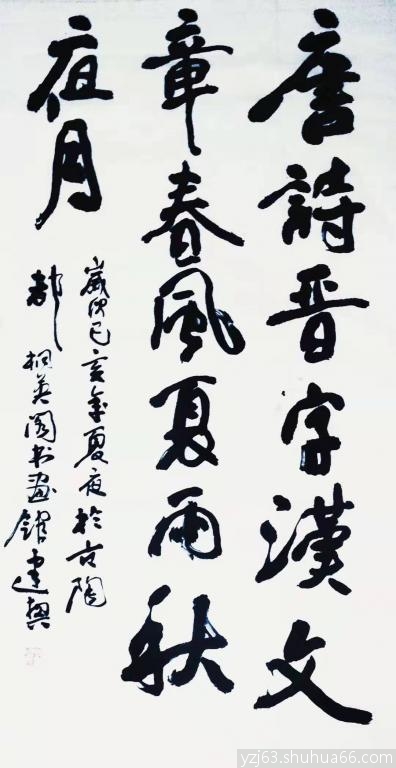 唐詩晋字漢文
章春風夏雨秋
夜月
歲次己亥年夏夜於古陶
都桐英阁书画館建興
yzj63.shuhua66.com